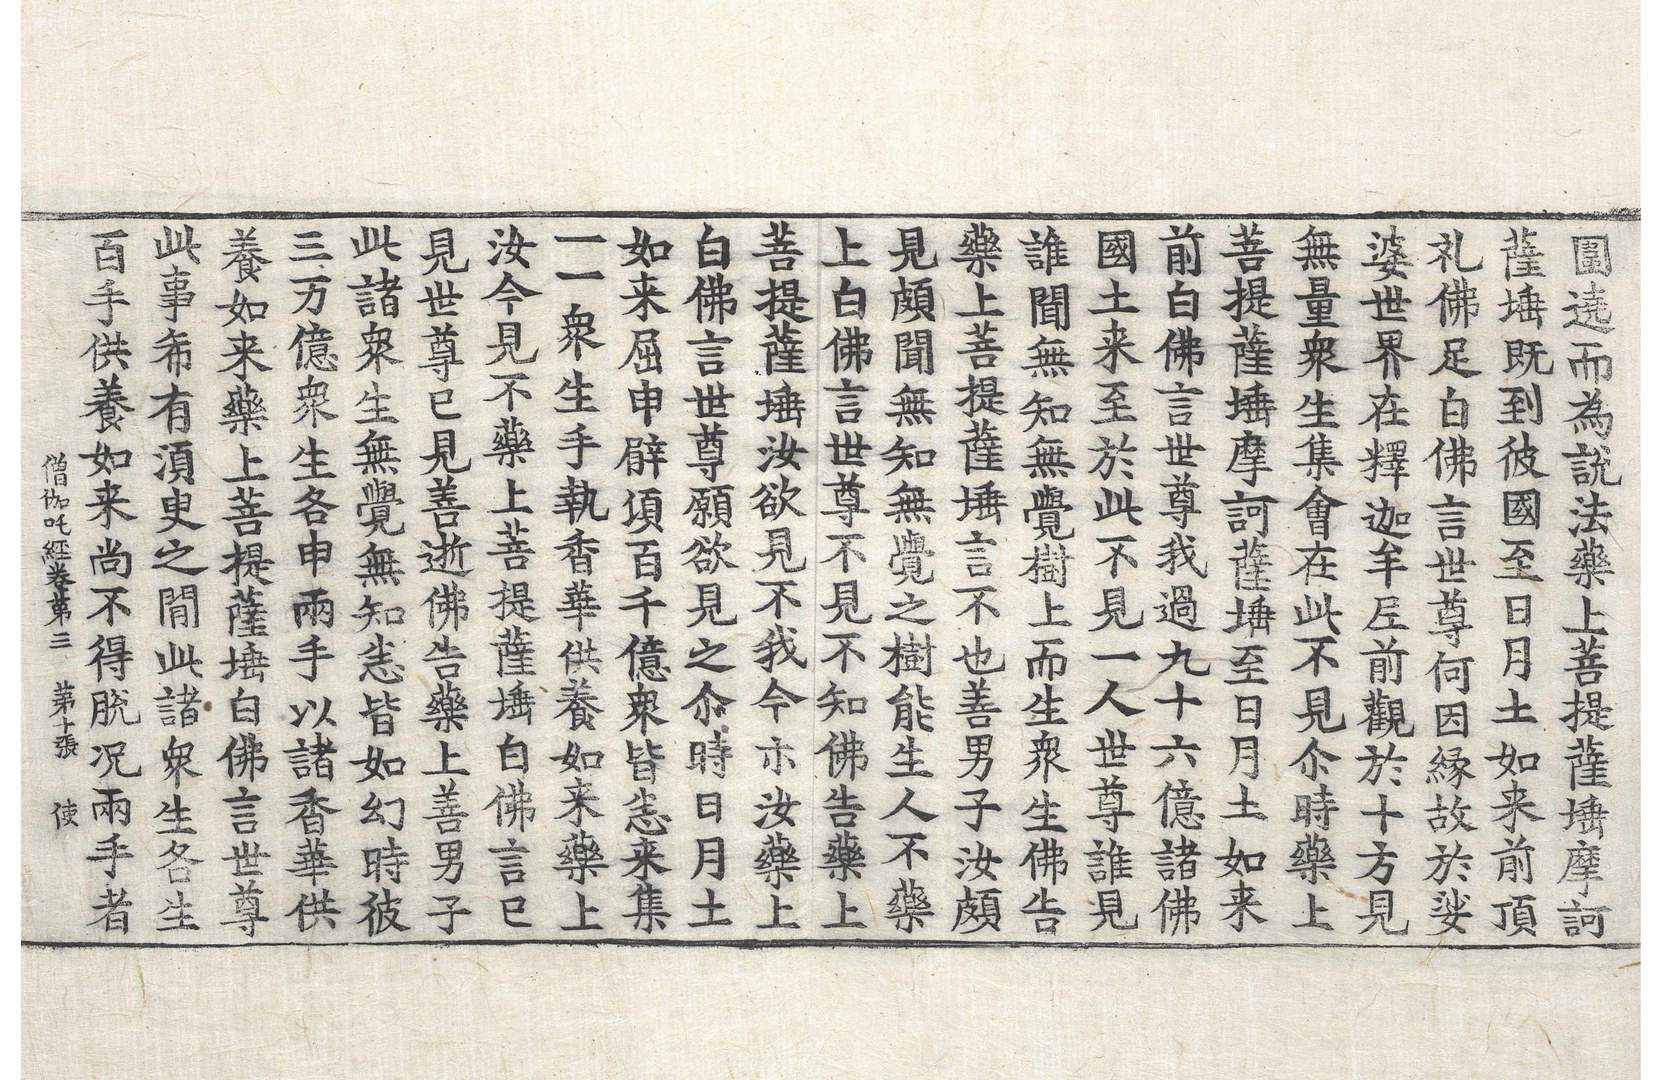 圍遶而為說法藥上菩提薩埵摩訶
薩埵既到彼國至日月土如来前頂
礼佛足白佛言世尊何因緣故於娑
婆世界在釋迦牟尼前觀於十方見
無量衆生集會在此不見尒時藥上
菩提薩埵摩訶薩埵至日月土如来
前白佛言世尊我過九十六億諸佛
國土来至於此不見一人世尊誰見
誰聞無知無覺樹上而生衆生佛告
藥上菩提薩埵言不也善男子汝頗
見頗聞無知無覺之樹能生人不藥
上白佛言世尊不見不知佛告藥上
菩提薩埵汝欲見不我今示汝藥上
白佛言世尊願欲見之尒時日月土
如来屈申臂頃百千億衆皆悉来集
一一衆生手執香華供養如来藥上
汝今見不藥上菩提薩埵白佛言已
見世尊已見善逝佛告藥上善男子
此諸衆生無覺無知悉皆如幻時彼
三万億衆生各申兩手以諸香華供
養如来藥上菩提薩埵白佛言世尊
此事希有須臾之間此諸衆生各生
百手供養如来尚不得脫况兩手者
僧伽吒經卷第三 第十張 使